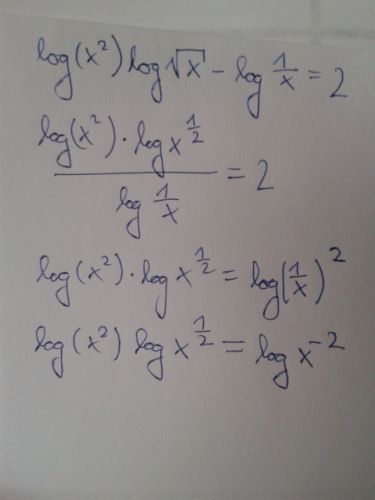 log(x²) log √x - log 1/x = 2
log(x²) · log x^(1/2) / log 1/x = 2
log(x²) · log x^(1/2) = log(1/x)²
log(x²) log x^(1/2) = log x⁻²